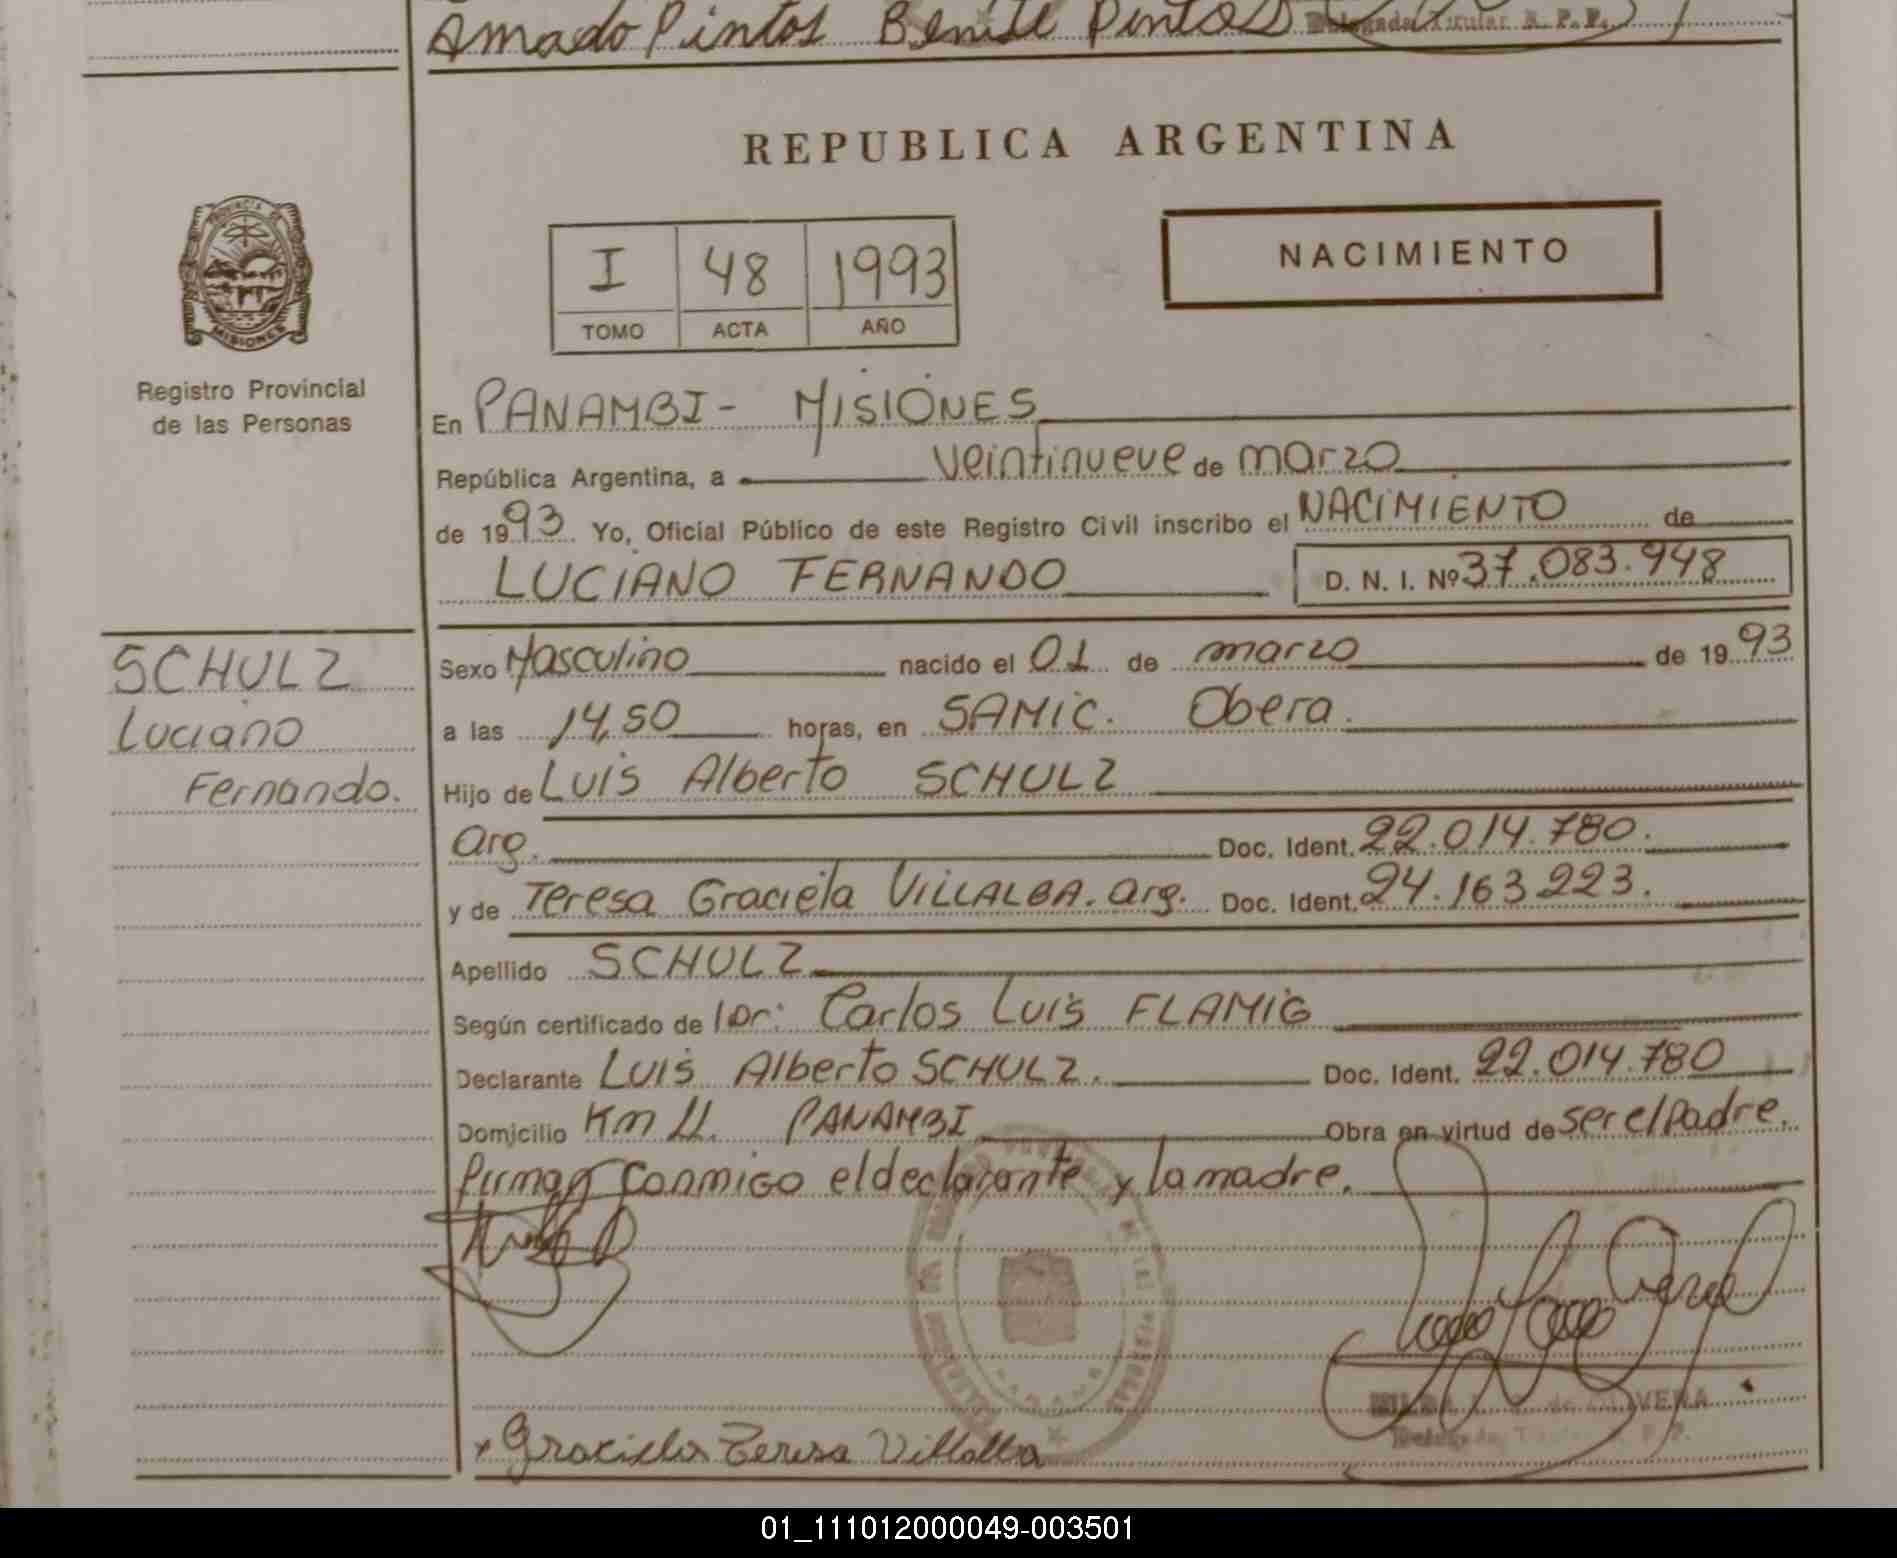 Amado Pintos Benite Pintos
Delegada Titular R. P. P.
REPUBLICA ARGENTINA
PROVINCIA DE
MISIONES
Registro Provincial
de las Personas
I 48 1993
TOMO ACTA AÑO
NACIMIENTO
En PANAMBI - MISIONES
República Argentina, a veintinueve de marzo
de 1993. Yo, Oficial Público de este Registro Civil inscribo el NACIMIENTO de
LUCIANO FERNANDO D. N. I. Nº 37.083.948
SCHULZ
Luciano
Fernando.
Sexo Masculino nacido el 01 de marzo de 1993
a las 14,50 horas, en SAMIC. Obera.
Hijo de Luis Alberto SCHULZ
arg. Doc. Ident. 22.014.780.
y de Teresa Graciela VILLALBA. arg. Doc. Ident. 24.163223.
Apellido SCHULZ
Según certificado de l Dr: Carlos Luis FLAMIG
Declarante Luis Alberto SCHULZ. Doc. Ident. 22.014.780
Domicilio Km 11. PANAMBI Obra en virtud de ser el Padre.
firman conmigo el declarante y la madre.
x Graciela Teresa Villalba
01_111012000049-003501